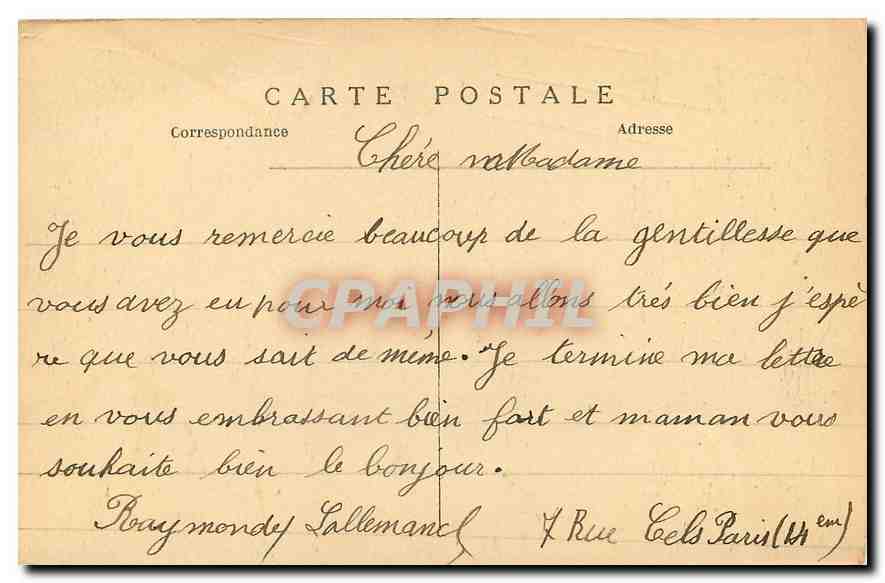 CARTE POSTALE
Correspondance Adresse
Chére Madame
Je vous remercie beaucoup de la gentillesse que
vous avez eu pour moi nous allons trés bien j'espè
re que vous sait de même. Je termine ma lettre
en vous embrassant bien fort et maman vous
souhaite bien le bonjour.
Raymonde Lallemand 7 Rue Cels Paris (14 em)
CPAPHIL